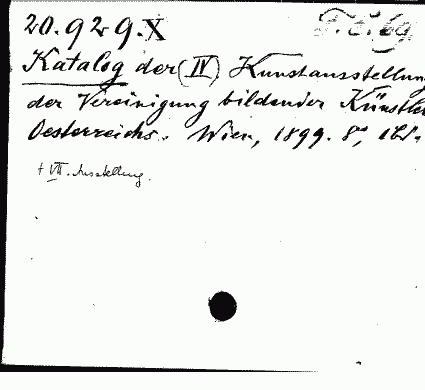 20.929.X
Katalog der (IV) Kunstausstellung
der Vereinigung bildender Künstler
Oesterreichs. Wien, 1899. 8°, 1 Bd.
+ VII. Ausstellung.